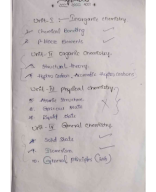 Unit-I Inorganic chemistry
Chemical Bonding
P-Block Elements
Unit-II Organic chemistry
Structural theory
Hydrocarbon, Aromatic Hydrocarbons
Unit-III Physical chemistry
Atomic Structure
Gaseous State
Liquid State
Unit-IV General chemistry
Solid State
General principles